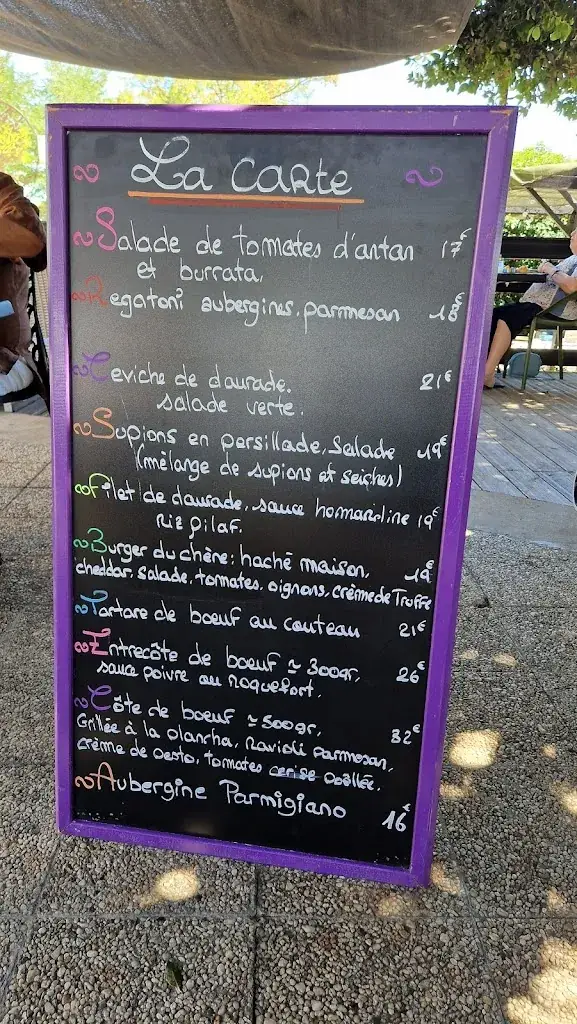 La carte
Salade de tomates d'antan 17€
et burrata.
Regatoni aubergines, parmesan 18€
Ceviche de daurade. 21€
salade verte.
Supions en persillade, salade 19€
(mélange de supions et seiches)
Filet de daurade, sauce homardine 19€
Riz pilaf.
Burger du chère: haché maison, 19€
cheddar, salade, tomates, oignons, crème de Truffe
Tartare de boeuf au couteau 21€
Entrecôte de boeuf ≃ 300gr, 26€
sauce poivre ou roquefort.
Côte de boeuf ≃ 500gr, 32€
Grillée à la plancha, Ravioli parmesan,
crème de pesto, tomates cerise poêlée.
Aubergine Parmigiano 16€